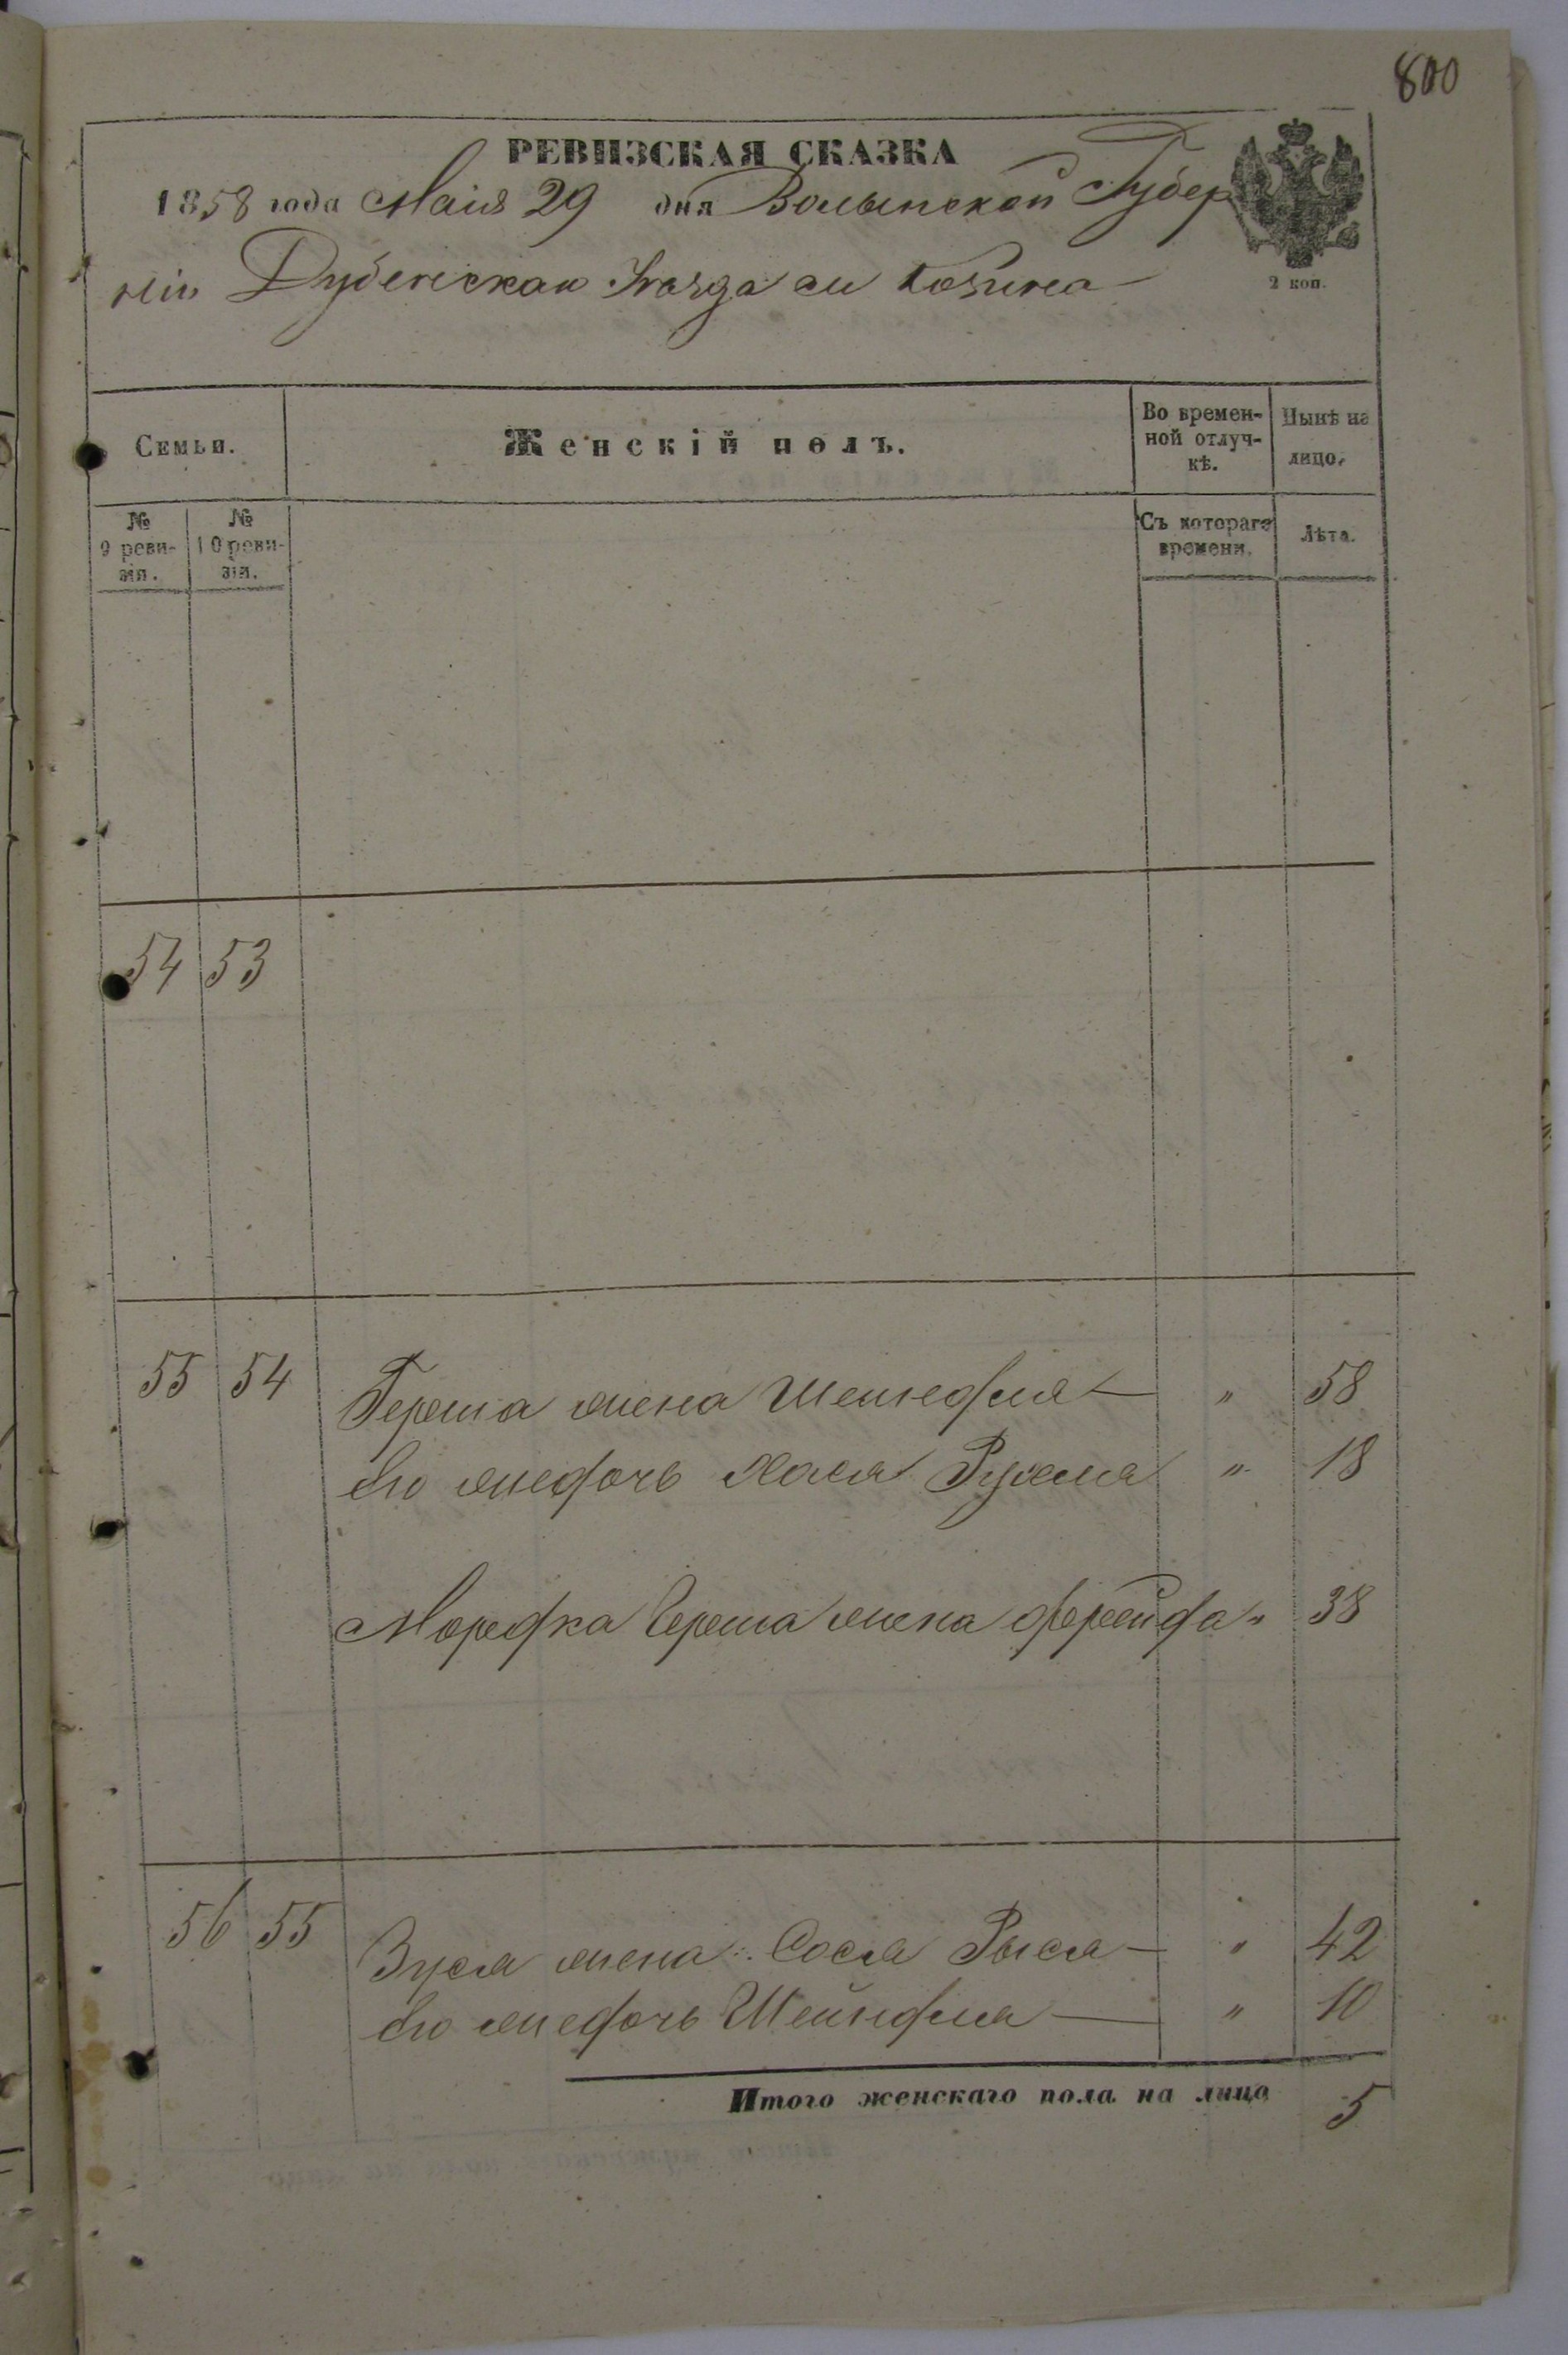 800
РЕВИЗСКАЯ СКАЗКА
1858 года Маія 29 дня Волынской Губер
ніи Дубенскаго Уѣзда м Козина
2 коп.
Семьи.
Женскій полъ.
Во времен-
ной отлуч-
кѣ.
Нынѣ на
лицо.
№
9 реви-
зіи.
№
10 реви-
зіи.
Съ котораго
времени.
Лѣта.
54 53
55 54 Герша жена Шейндля — " 58
его же дочь Хася Рухля " 18
Мордка Герша жена Фрейда " 38
56 55 Зуся жена Сося Рыся — " 42
его же дочь Шейндля — " 10
Итого женскаго пола на лицо 5